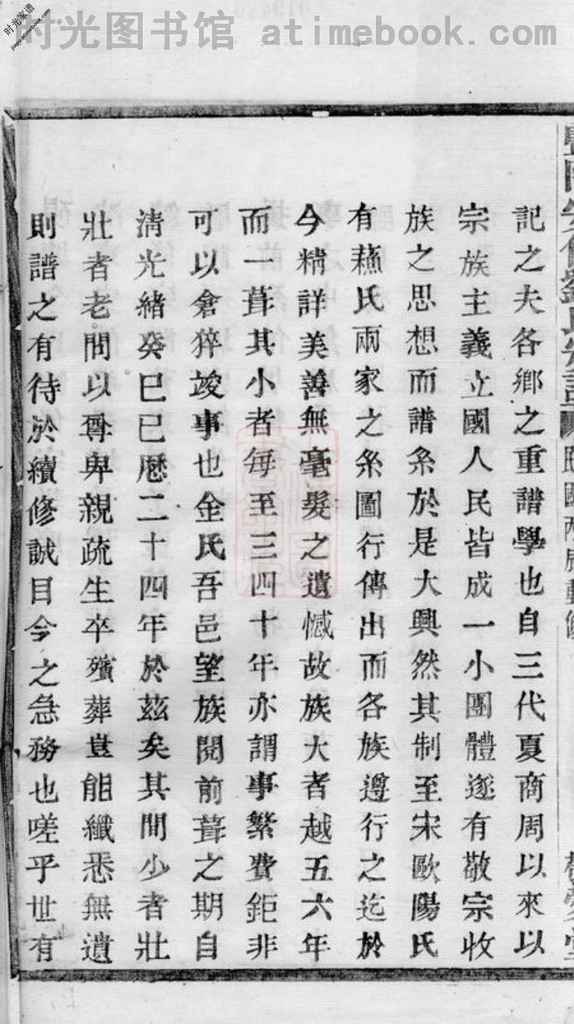 时光图书馆 atimebook.com
时光家谱
記之夫各鄉之重譜學也自三代夏商周以來以
宗族主義立國人民皆成一小團體遂有敬宗收
族之思想而譜系於是大興然其制至宋歐陽氏
有蘓氏兩家之系圖行傳出而各族遵行之迄於
今精詳美善無毫髮之遺憾故族大者越五六年
而一葺其小者每至三四十年亦謂事繁費鉅非
可以倉猝竣事也金氏吾邑望族閱前葺之期自
清光緒癸巳已歷二十四年於茲矣其間少者壯
壯者老間以尊卑親疏生卒殯葬豈能纖悉無遺
則譜之有待於續修誠目今之急務也嗟乎世有